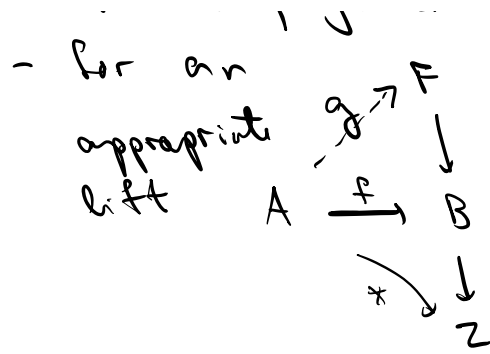 - for an
appropriate
lift
F
g
A f B
*
Z